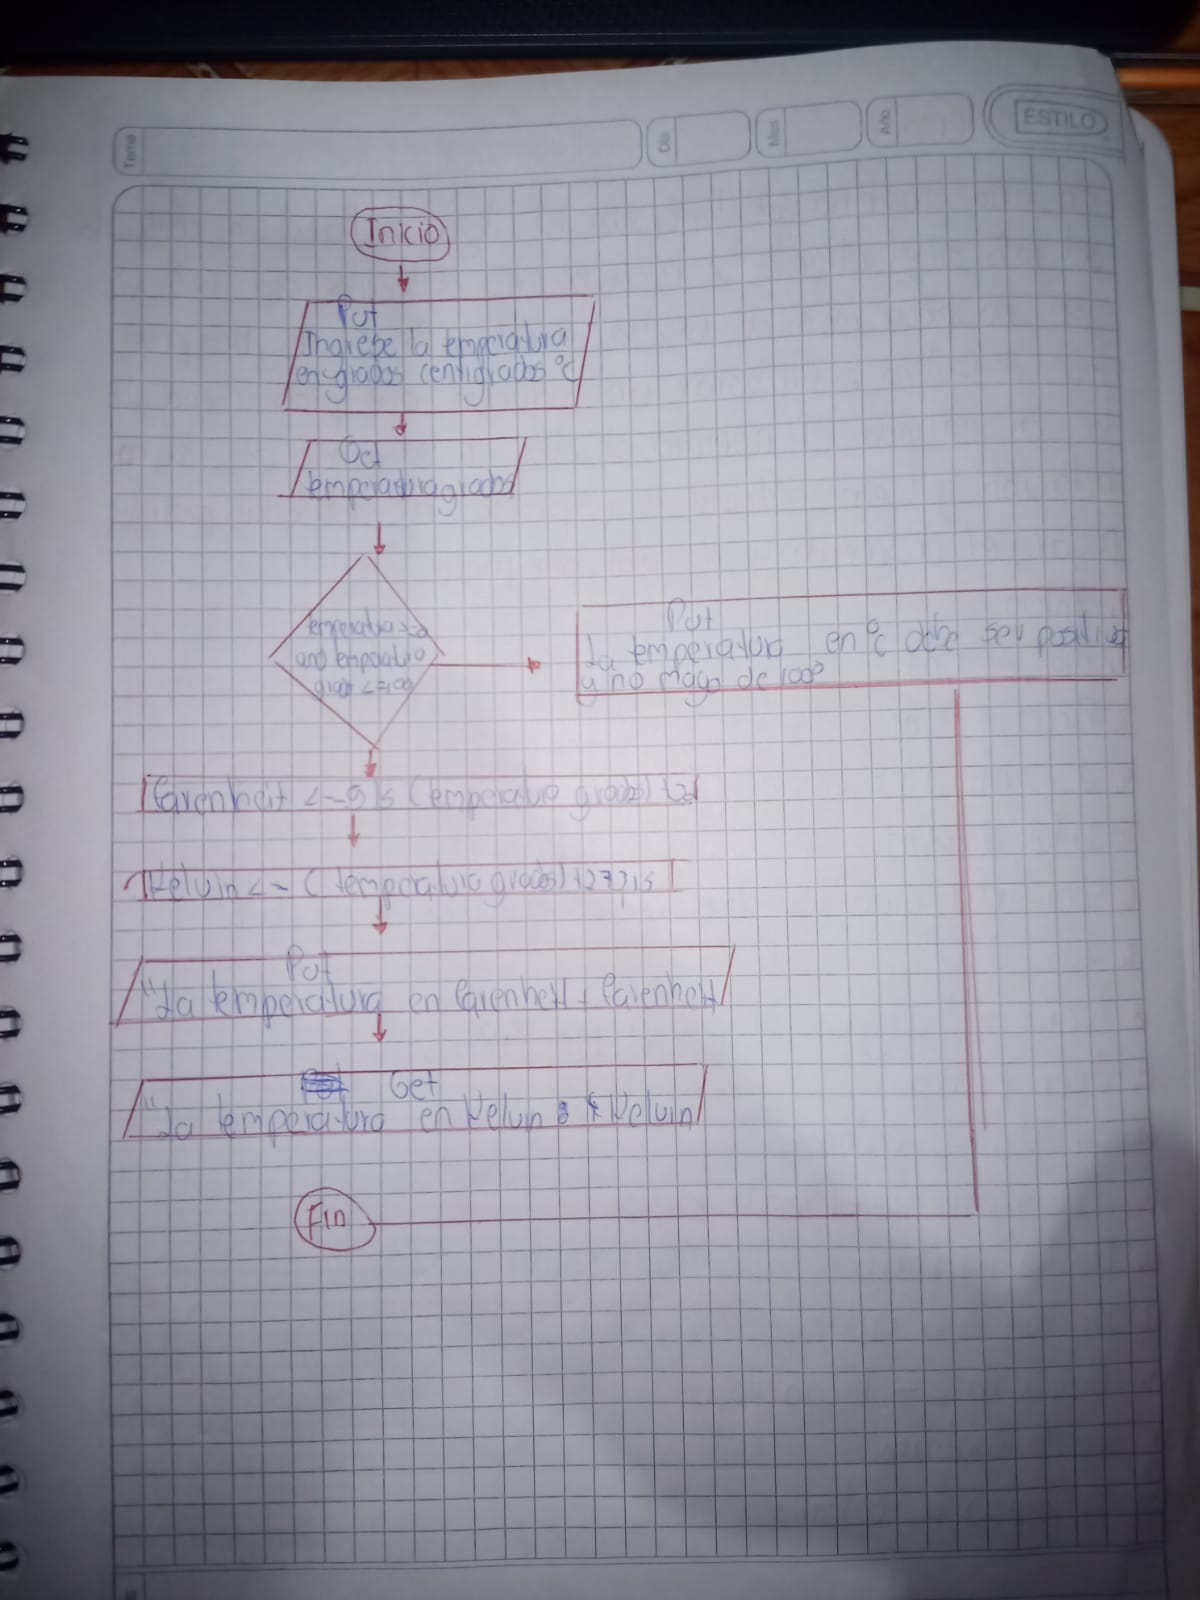 Tema
Dia
Mes
Año
ESTILO
Inicio
Put
Ingrebe la temperatura
en grados centigrados °C
Get
temperatura grados
temperatura
and temperatura
grad <=100
Put
La temperatura en °C debe ser positiva
y no mayo de 100°
farenheit <- 9/5 (temperatura grados)
Kelvin <- (temperatura grados) +273,15
Put
"La temperatura en farenheit + farenheit
Get
"La temperatura en Kelvin Kelvin
Fin